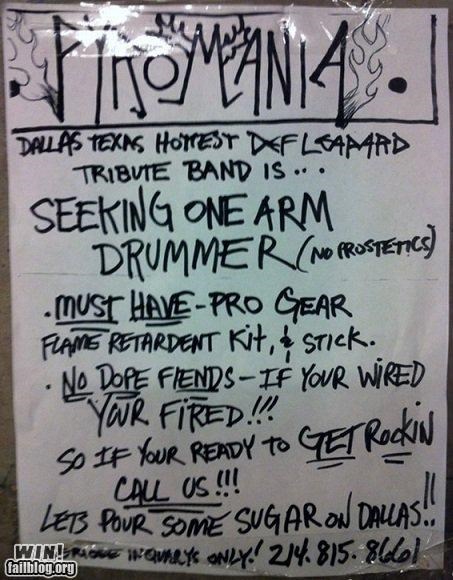 PYROMANIA
DALLAS TEXAS HOTTEST DEF LEAPARD
TRIBUTE BAND IS ...
SEEKING ONE ARM
DRUMMER (NO PROSTETICS)
. MUST HAVE - PRO GEAR
FLAME RETARDENT Kit, & STICK.
. NO DOPE FIENDS - IF YOUR WIRED
YOUR FIRED!!!
SO IF YOUR READY TO GET RocKIN
CALL US!!!
LETS POUR SOME SUGAR ON DALLAS!!
INQUARYS ONLY! 214.815.8661
WIN!
failblog.org